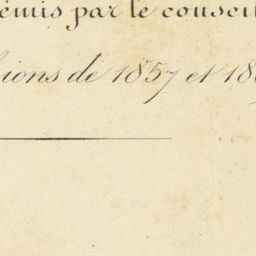 émis par le conseil
sions de 1857 et 18